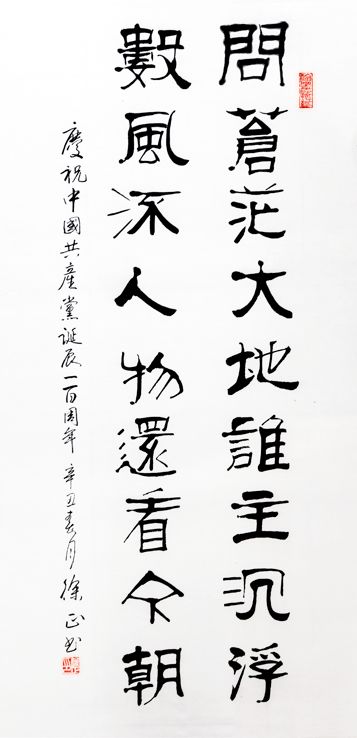 問蒼茫大地誰主沉浮
數風流人物還看今朝
慶祝中國共產黨誕辰一百周年 辛丑春月 徐正书